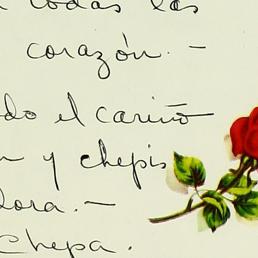 todas las
corazón. —
do el cariño
n y chepis
dora. —
chepa.